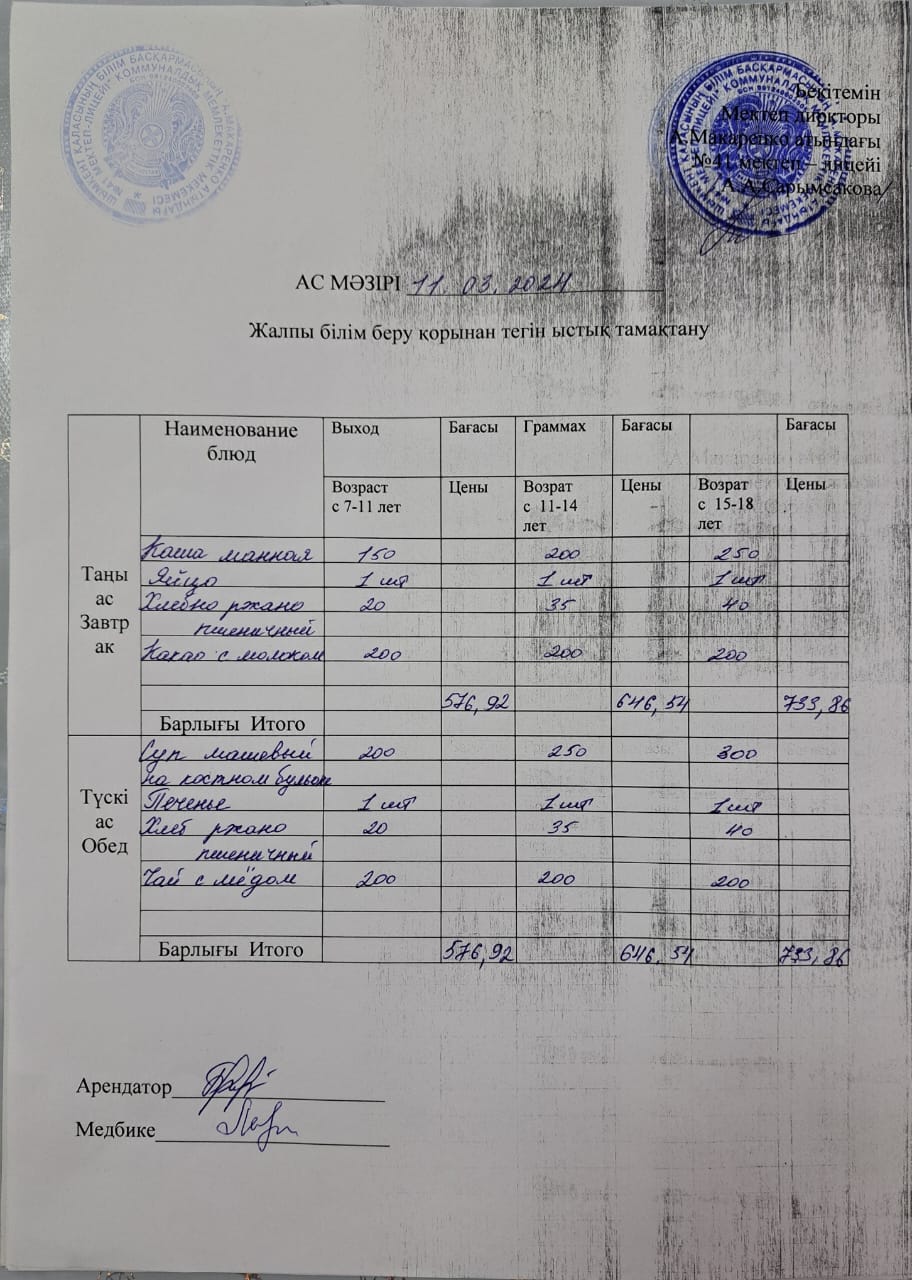 Бекітемін
Мектеп диркторы
А.Макаренко атындағы
№41 мектеп – лицейі
А.А.Сарымсакова
АС МӘЗІРІ 11. 03. 2024
Жалпы білім беру қорынан тегін ыстық тамақтану
Наименование блюд Выход Бағасы Граммах Бағасы Бағасы
Возраст с 7-11 лет Цены Возрат с 11-14 лет Цены Возрат с 15-18 лет Цены
Таңы ас Завтр ак
Каша манная 150 200 250
Яйцо 1 шт 1 шт 1 шт
Хлебно ржано 20 35 40
пшеничный
Какао с молоком 200 200 200
576,92 646,54 733,86
Барлығы Итого
Түскі ас Обед
Суп машевый 200 250 300
на костном бульон
Печенье 1 шт 1 шт 1 шт
Хлеб ржано 20 35 40
пшеничный
Чай с мёдом 200 200 200
Барлығы Итого 576,92 646,54 733,86
Арендатор
Медбике